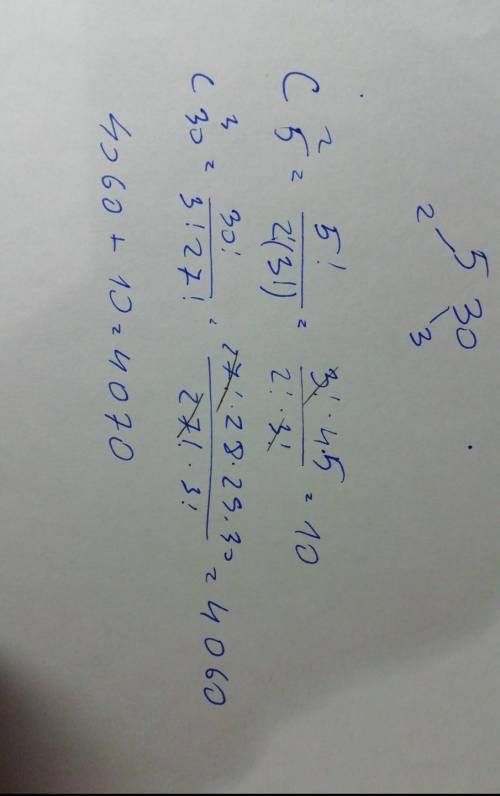 5 30
2 3
C²₅ = 5! / 2!(3!) = 3! · 4 · 5 / 2! · 3! = 10
C³₃₀ = 30! / 3! 27! = 27! · 28 · 29 · 30 / 27! · 3! = 4060
4060 + 10 = 4070